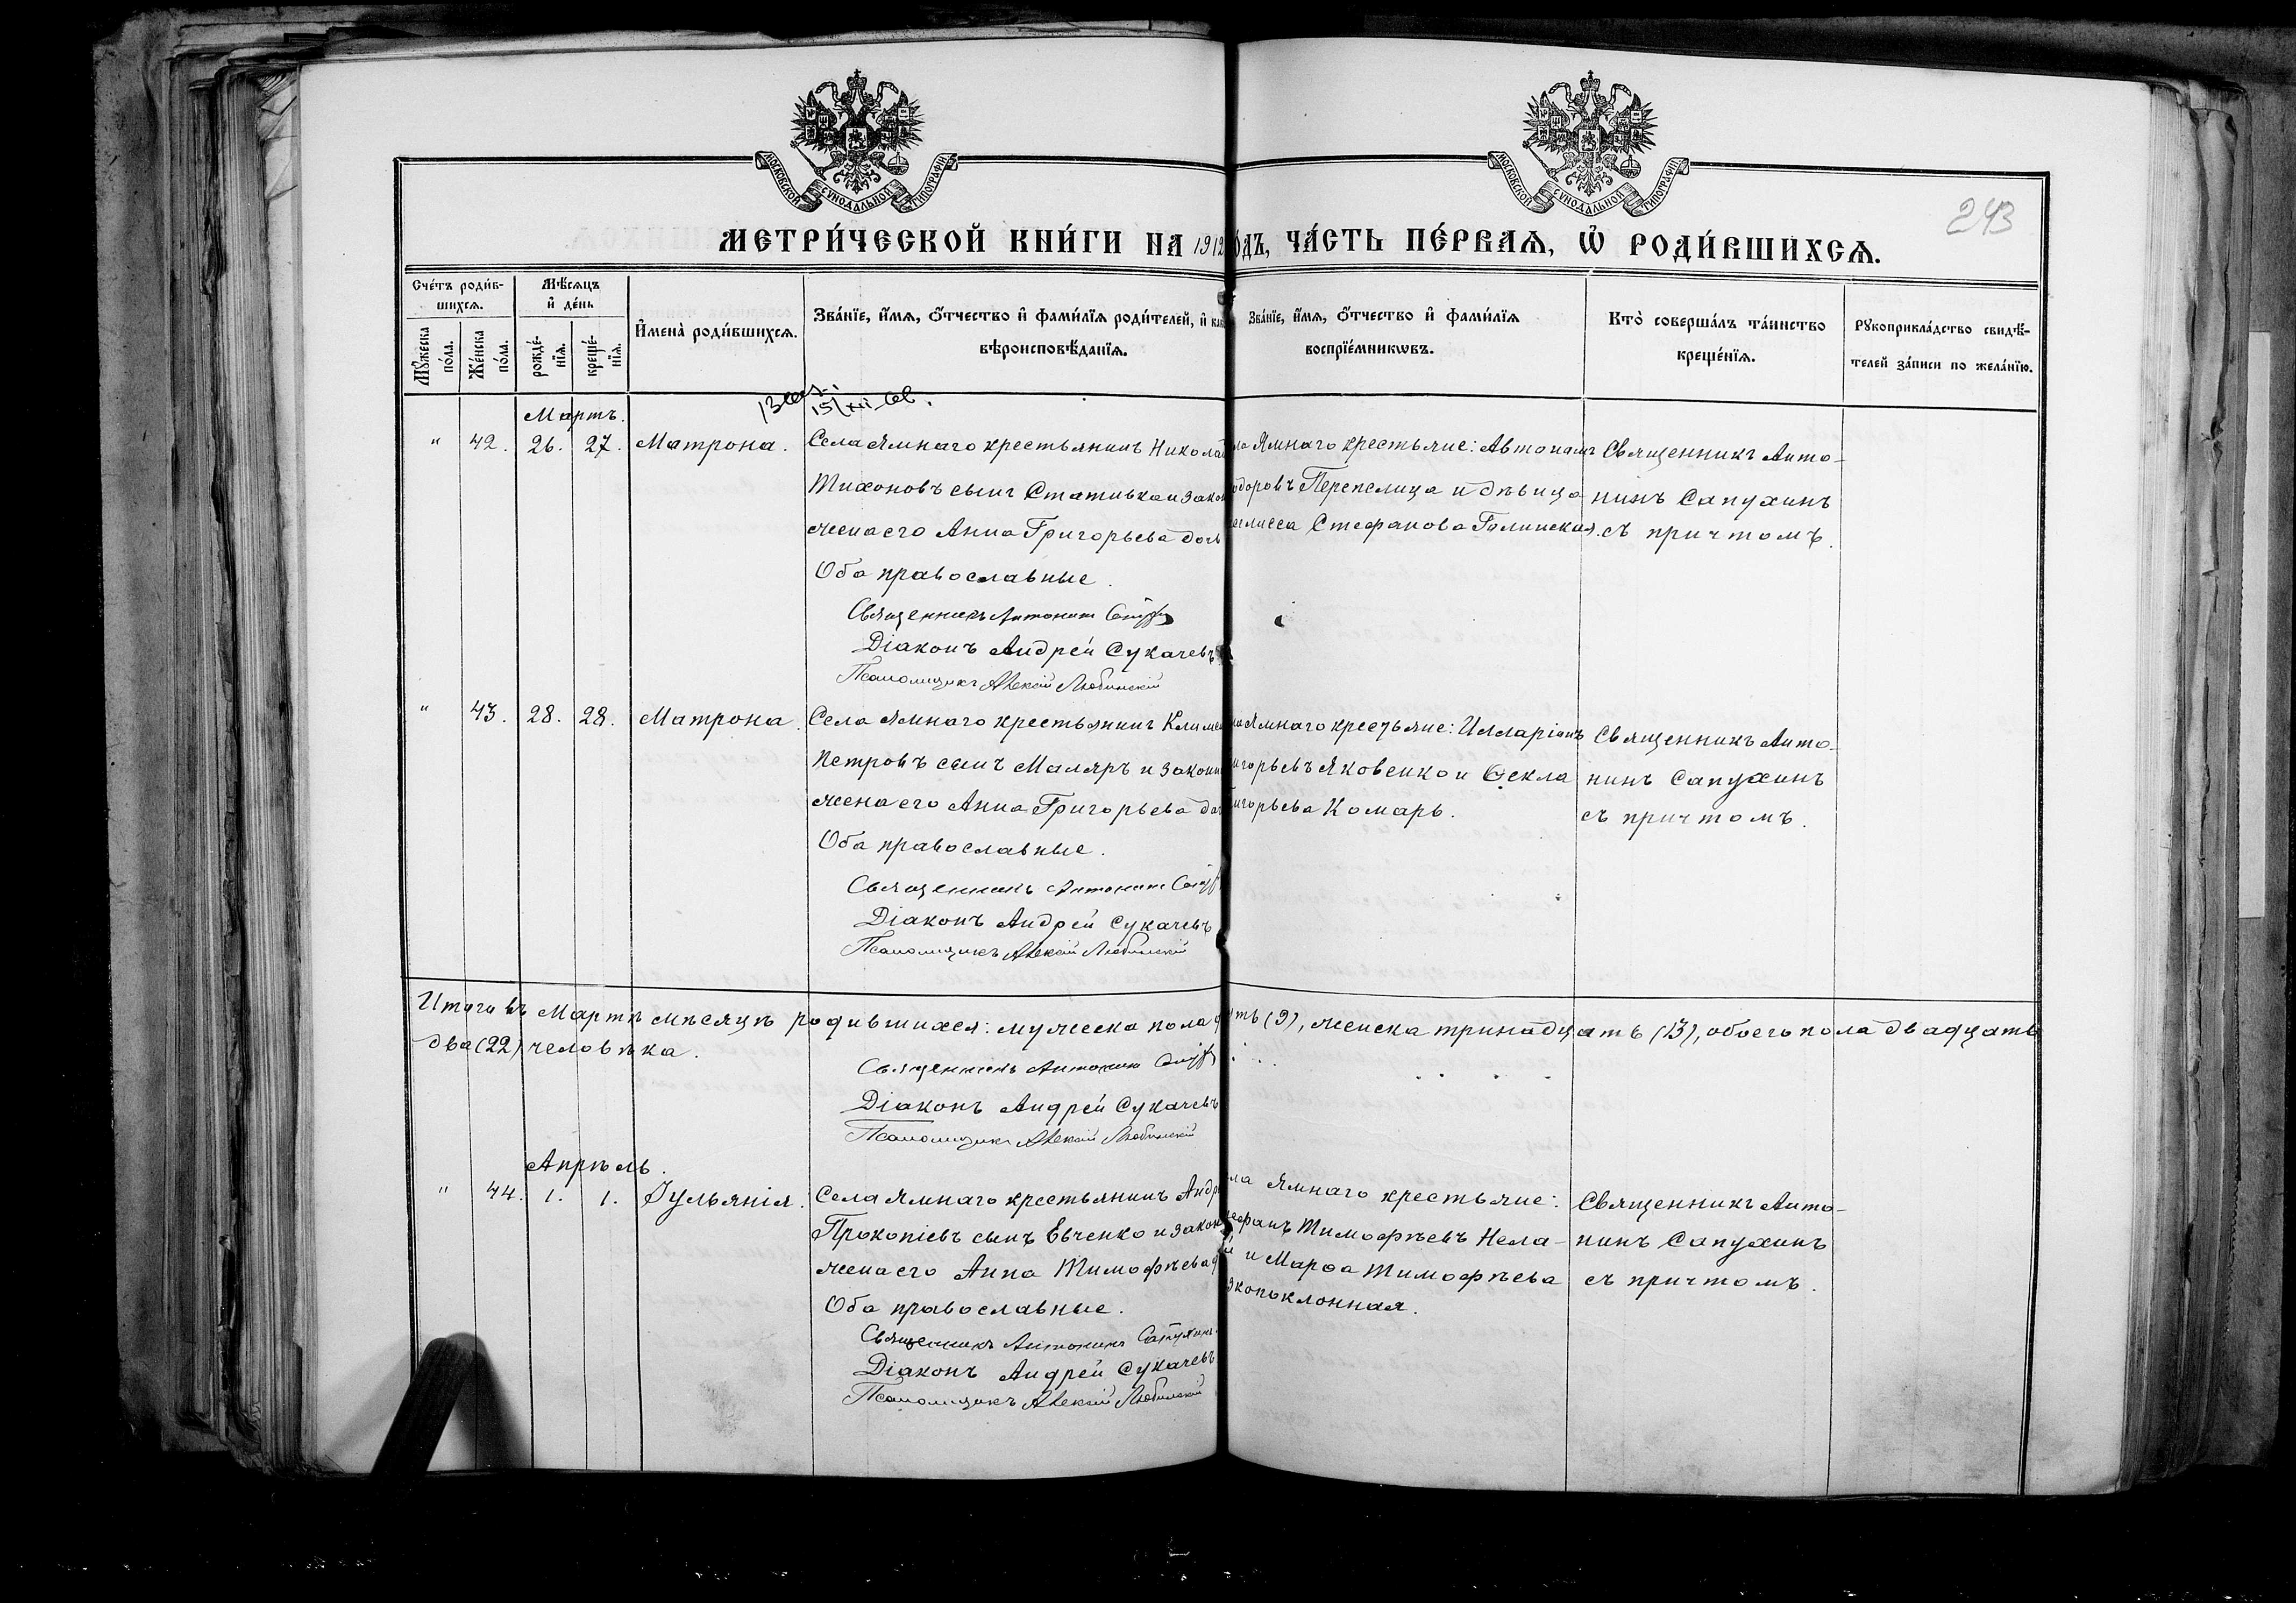 МОСКОВСКОЙ СѴНОДАЛЬНОЙ ТИПОГРАФІИ
МОСКОВСКОЙ СѴНОДАЛЬНОЙ ТИПОГРАФІИ
243
МЕТРИ́ЧЕСКОЙ КНИ́ГИ НА 1912
ОДЪ, ЧА́СТЬ ПЕ́РВАѦ, Ѡ҆ РОДИ́ВШИХСѦ.
Сче́тъ роди́в-
шихсѧ.
Мꙋ́жеска по́ла.
Же́нска по́ла.
Мѣ́сѧцъ
и҆ де́нь
рожде́-нїѧ.
креще́-нїѧ.
И҆мена̀ роди́вшихсѧ.
Зва́нїе, и҆́мѧ, ѻ҆́тчество и҆ фами́лїѧ роди́телей, и҆
вѣроисповѣ́данїѧ.
Зва́нїе, и҆́мѧ, ѻ҆́тчество и҆ фами́лїѧ
воспрїе́мникѡвъ.
Кто̀ соверша́лъ та́инство
креще́нїѧ.
Рꙋкоприкла́дство свидѣ́-
телей за́писи по жела́нїю.
Мартъ.
" 42. 26. 27. Матрона. Села Ямнаго крестьянинъ Никола
Тихоновъ сынъ Стативка и закон
жена его Анна Григорьева доч
Оба православные.
Священникъ Антонинъ
Діаконъ Андрей Сукачевъ
Псаломщикъ Алексій Любинскій
ла Ямнаго крестьяне: Автономъ
одоровъ Перепелица и дѣвица
Стефанова Галинская.
Священникъ Анто-
нинъ Сапухинъ
съ причтомъ.
" 43. 28. 28. Матрона. Села Ямнаго крестьянинъ Климе
Петровъ сынъ Маляръ и законн
жена его Анна Григорьева доч
Оба православные.
Священникъ Антонинъ
Діаконъ Андрей Сукачевъ
Псаломщикъ Алексій Любинскій
ла Ямнаго крестьяне: Илларіонъ
игорьевъ Яковенко и Ѳекла
игорьева Комаръ.
Священникъ Анто-
нинъ Сапухинъ
съ причтомъ.
Итого въ Мартѣ мѣсяцѣ родившихся: мужеска пола д ять (9), женска тринадцать (13), обоего пола двадцать
два (22) человѣка.
Священникъ Антонинъ
Діаконъ Андрей Сукачевъ
Псаломщикъ Алексій Любинскій
Апрѣль.
" 44. 1. 1. Іульянія. Села Ямнаго крестьянинъ Андр
Прокопіевъ сынъ Евченко и закон
жена его Анна Тимофѣева д
Оба православные.
Священникъ Антонинъ Сапухинъ
Діаконъ Андрей Сукачевъ
Псаломщикъ Алексій Любинскій
ла Ямнаго крестьяне:
ефанъ Тимофѣевъ Нела-
й и Марѳа Тимофѣева
зкопоклонная.
Священникъ Анто-
нинъ Сапухинъ
съ причтомъ.